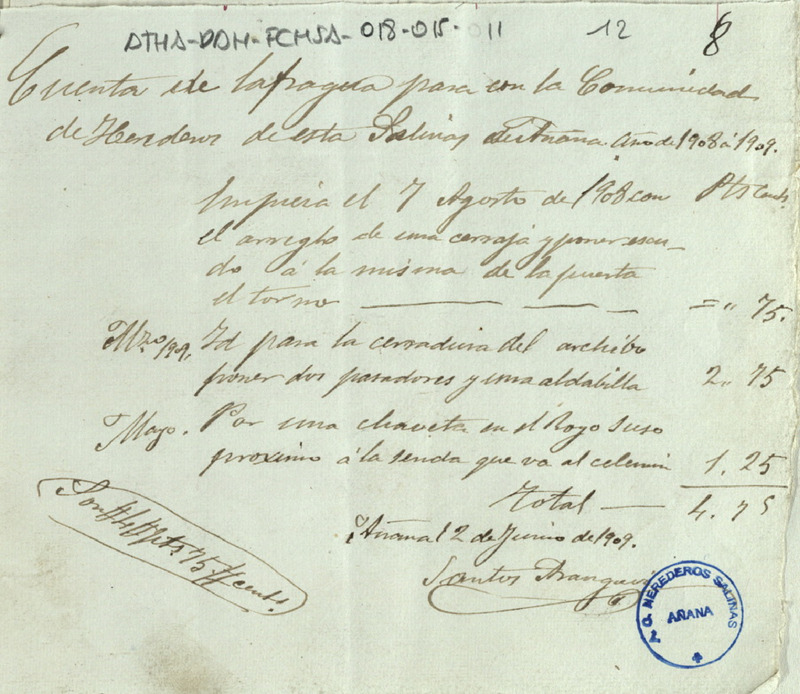 ATHA-DAH-FCHSA-018-015-011 12 8
Cuenta de la fragua para con la Comunidad
de Herederos de esta Salinas de Añana Año de 1908 á 1909.
Empieza el 7 Agosto de 1908 con Pts Cents.
el arreglo de una cerraja y poner escu_
do á la misma de la puerta
el torno = " 75.
Mzo 1909. Id para la cerradura del archibo
poner dos pasadores y una aldabilla 2 " 75
Mayo. Por una chaveta en el Royo Suso
proximo á la senda que va al celemin 1. 25
Total 4. 75
Son #4# Pts 75 #cents.
Añana 12 de Junio de 1909.
Santos
P. G. HEREDEROS SALINAS
AÑANA